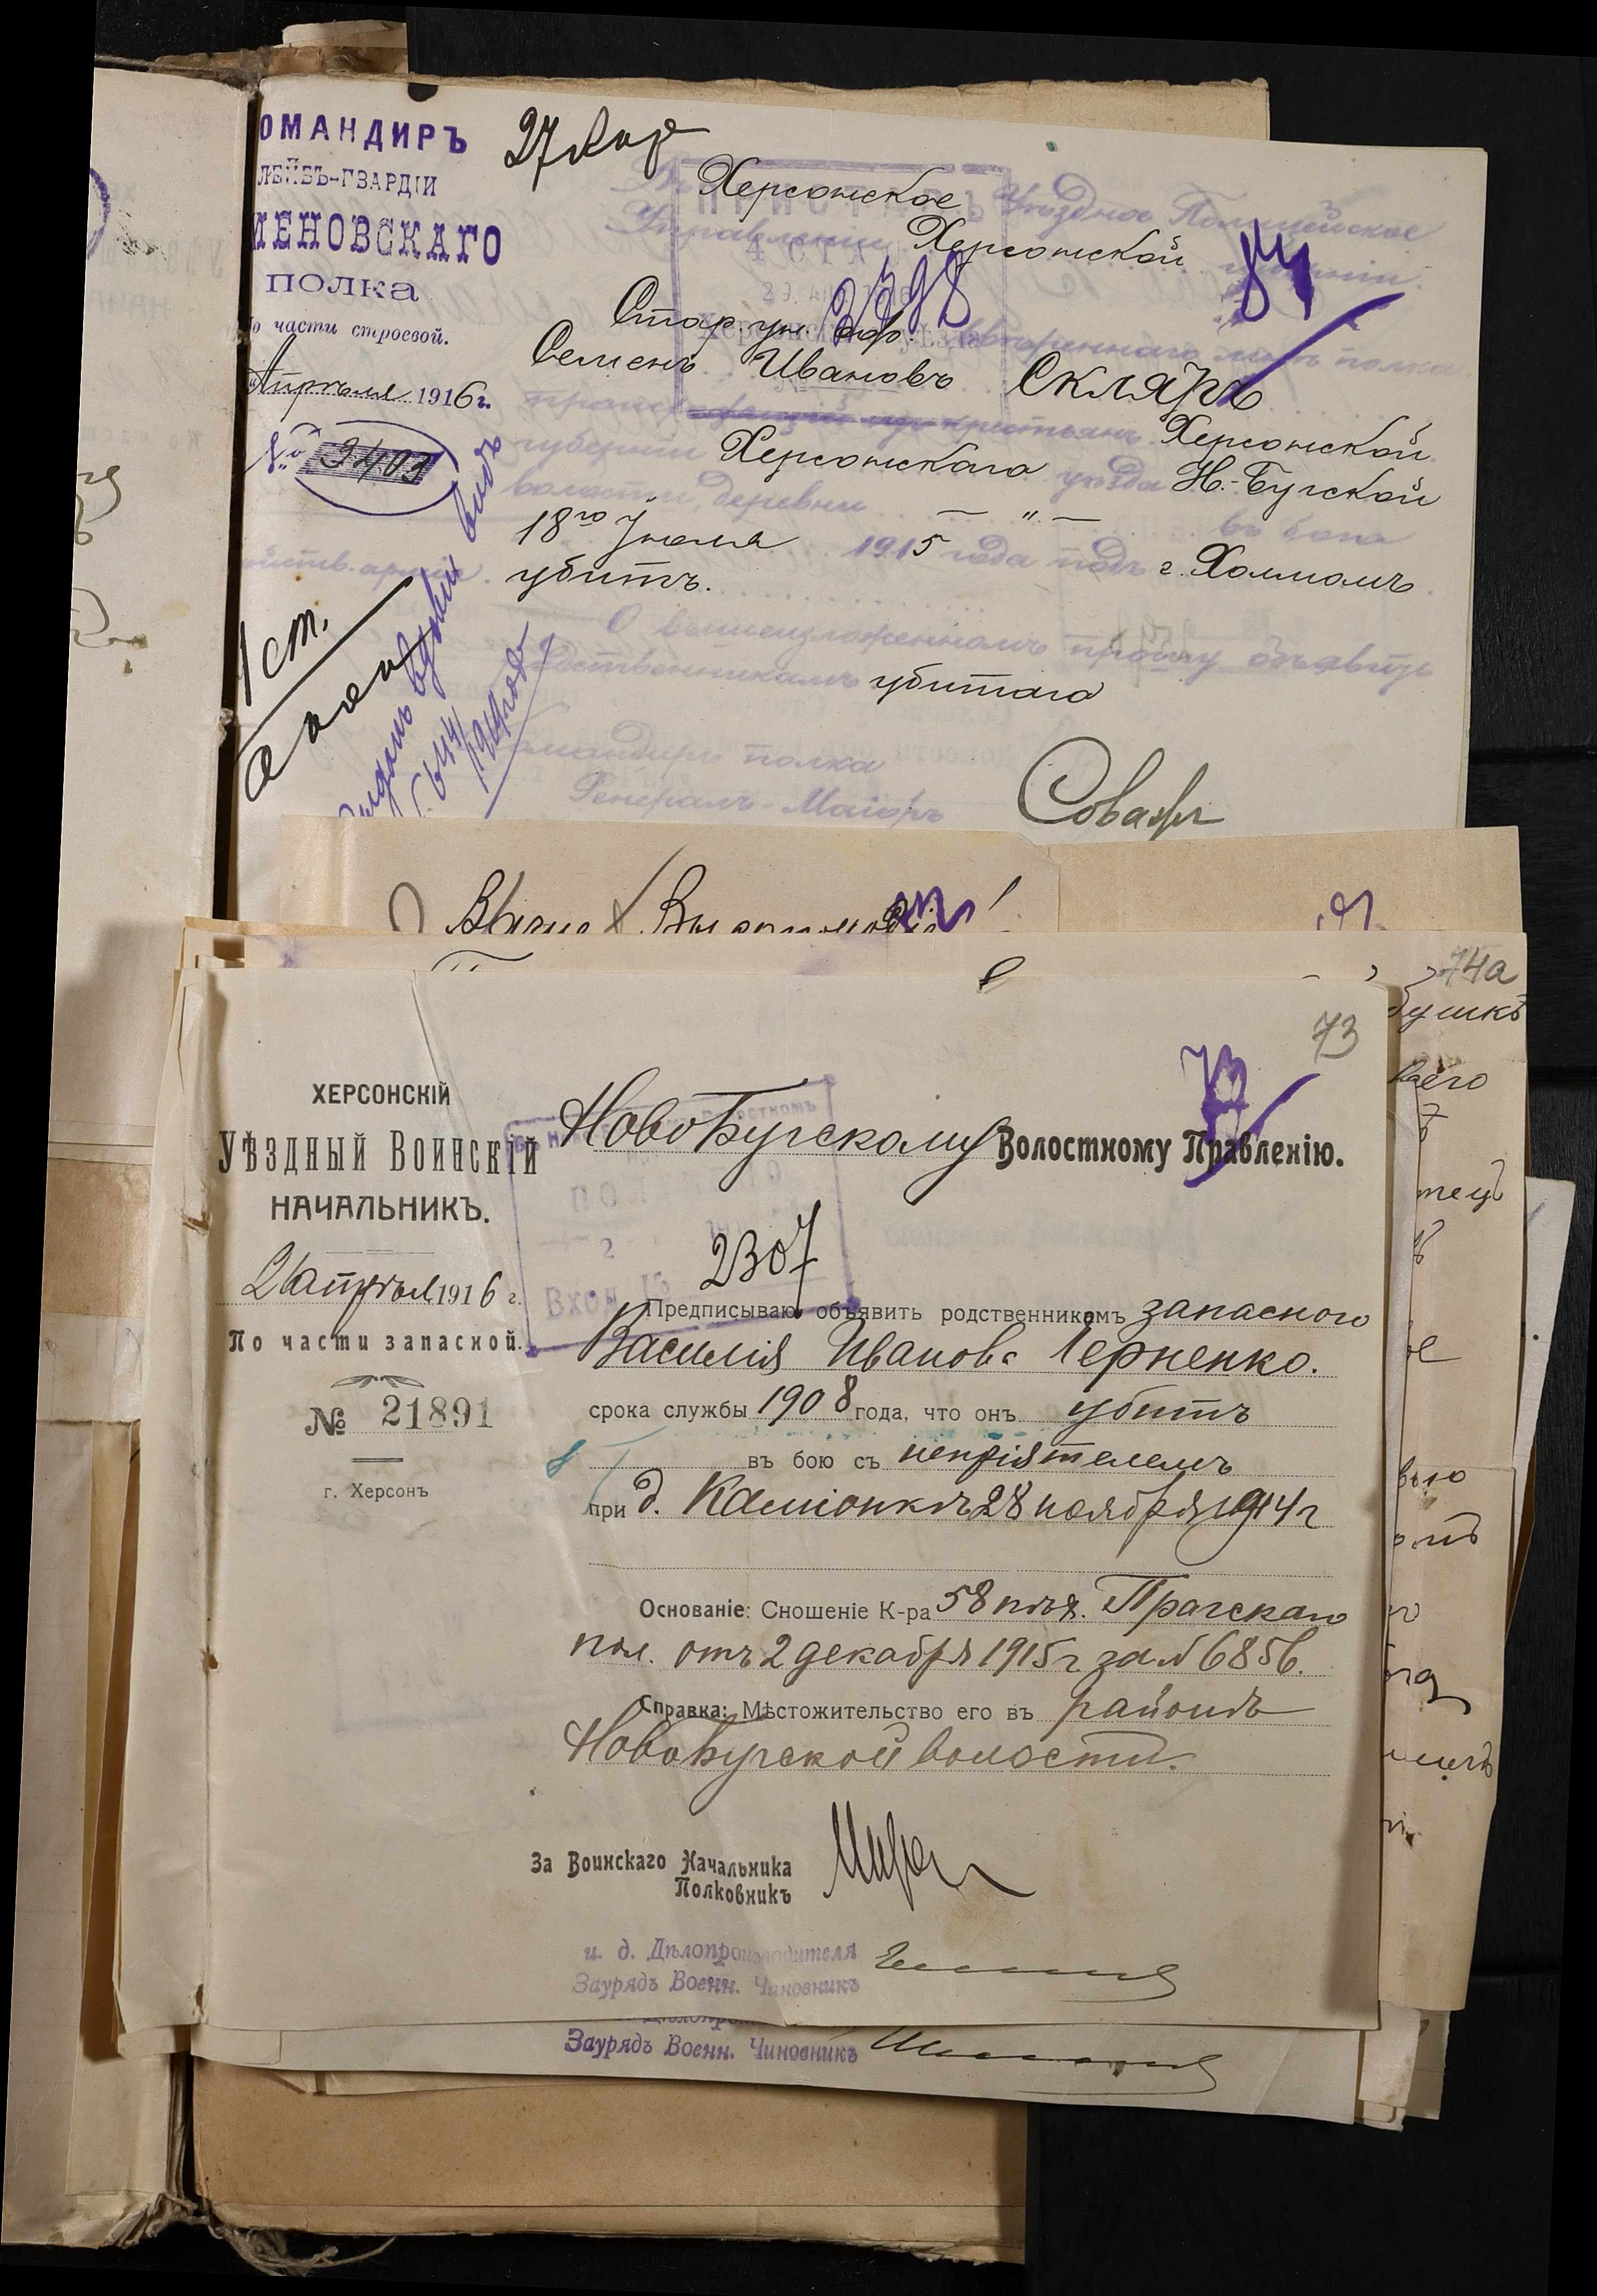 ОМАНДИРЪ
ЛЕЙБЪ-ГВАРДІИ
МЕНОВСКАГО
ПОЛКА
о части строевой.
Апрѣля 1916 г.
№ 3403
27 Апр
1 ст.
Въ Херсонское Уѣздное Полицейское
Управленіе Херсонской губерніи.
ПРИСТАВЪ
4 СТАНА
2398
84
Стар. ун. оф. ввѣреннаго мнѣ полка
Семенъ Ивановъ Скляръ
крестьянъ Херсонской
губерніи Херсонскаго уѣзда Н.-Бугской
волости, деревни — " — въ бою
18го Іюля 1915 года подъ г. Холмомъ
убитъ.
О вышеизложенномъ прошу объявить
родственникамъ убитаго
Командиръ полка
Генералъ-Маіоръ
74а
73
73
ХЕРСОНСКІЙ
УѢЗДНЫЙ ВОИНСКІЙ
НАЧАЛЬНИКЪ.
апрѣля 1916 г.
По части запасной.
№ 21891
г. Херсонъ
НовоБугскому Волостному Правленію.
2307
Вхон №
Предписываю объявить родственникамъ запасного
Василія Иванова Черненко.
срока службы 1908 года, что онъ убитъ
въ бою съ непріятелемъ
при д. Камionкѣ 28 ноября 1914 г
Основаніе: Сношеніе К-ра 58 пѣх. Прагскаго
пол. отъ 2 декабря 1915 г за № 6856.
Справка: Мѣстожительство его въ районѣ
НовоБугской волости.
За Воинскаго Начальника
Полковникъ
и. д. Дѣлопроизводителя
Заурядъ Военн. Чиновникъ
Заурядъ Военн. Чиновникъ